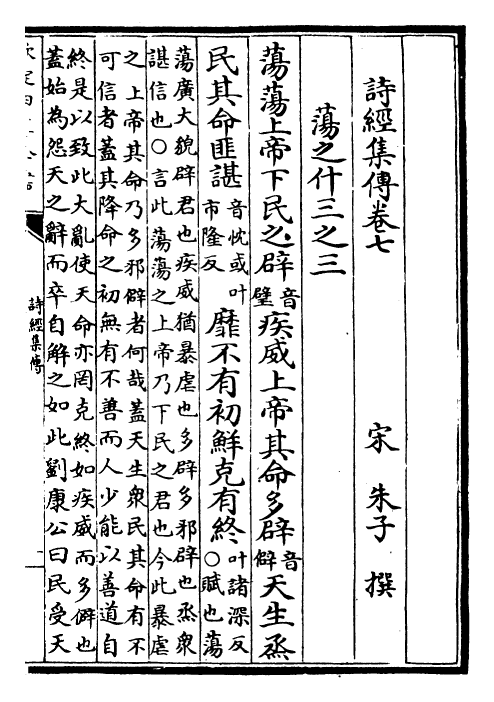 詩經集傳卷七 宋 朱子 撰
蕩之什三之三
蕩蕩上帝下民之辟音璧疾威上帝其命多辟音僻天生烝
民其命匪諶音忱或叶市隆反靡不有初鮮克有終叶諸深反○賦也蕩
蕩廣大貌辟君也疾威猶暴虐也多辟多邪辟也烝衆
諶信也○言此蕩蕩之上帝乃下民之君也今此暴虐
之上帝其命乃多邪僻者何哉蓋天生衆民其命有不
可信者蓋其降命之初無有不善而人少能以善道自
終是以致此大亂使天命亦罔克終如疾威而多僻也
蓋始為怨天之辭而卒自解之如此劉康公曰民受天
詩經集傳
一